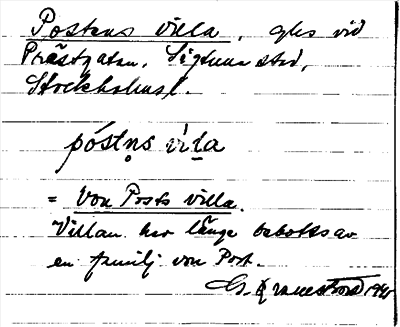 Postens villa, glns vid
Prästgatan, Sigtuna stad,
Stockholmsl.
póstn̥s vi̇̀l̲a
= Von Posts villa.
Villan har länge bebotts av
en familj von Post.
G. Franestrand 1945